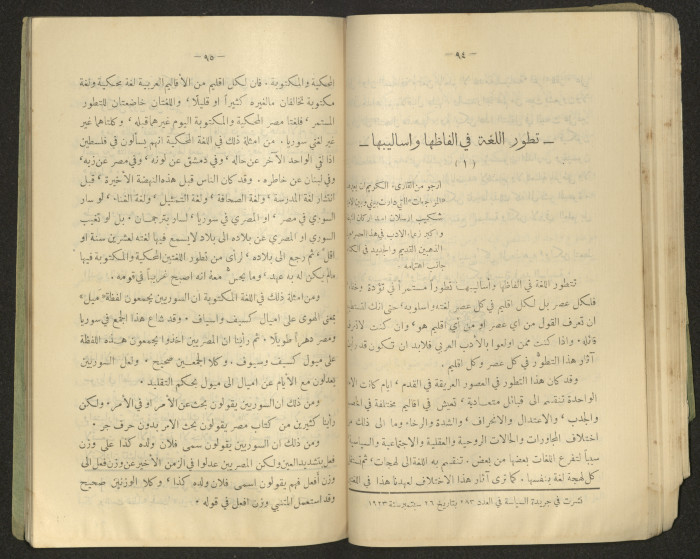 — ٩٤ —
— تطور اللغة في الفاظها واساليبها —
( ١ )
ارجو من القارىء الكريم ان
المراجعات التي دارت بيني وبين
شكيب ارسلان
واكبر زعماء الادب في هذا العصر
الذهبين القديم والجديد في
جانب اهتمامه .
تتطور اللغة في الفاظها وأساليبها تطوراً مستمراً في تؤدة
فلكل عصر بل لكل اقليم في كل عصر لغته واسلوبه ، حتى انك
ان تعرف القول من اي عصر او من أي اقليم هو ، وان كنت
قائله . واذا كنت ممن اولعوا بالأدب العربي فلابد ان تكون قد
آثار هذا التطور في كل عصر وكل اقليم .
وقد كان هذا التطور في العصور العريقة في القدم ، ايام كانت
الواحدة تنقسم الى قبائل متعادية ، تعيش في اقاليم مختلفة في
والجدب ، والاعتدال والانحراف ، والشدة والرخاء ، وما الى ذلك
اختلاف المجاورات والحالات الروحية والعقلية والاجتماعية والسياسية
سبباً لتفرع اللغات بعضها من بعض . تنقسم به اللغة الى لهجات ، ثم
كل لهجة لغة بنفسها . كما ترى آثار هذا الاختلاف لعهدنا هذا في
نشرت في جريدة السياسة في العدد ٢٨٣ بتاريخ ٢٦ سبتمبر سنة ١٩٢٣
— ٩٥ —
المحكية والمكتوبة . فان لكل اقليم من الأقاليم العربية لغة محكية ولغة
مكتوبة تخالفان مالغيره كثيراً او قليلاً ، واللغتان خاضعتان للتطور
المستمر ، فلغتا مصر المحكية والمكتوبة اليوم غيرهما قبله ، وكلتاهما غير
لغتي سوريا . من امثلة ذلك في اللغة المحكية انهم يسألون في فلسطين
اذا لقي الواحد الآخر عن حاله ، وفي دمشق عن لونه ، وفي مصر عن زيه ،
وفي لبنان عن خاطره . وقد كان الناس قبل هذه النهضة الأخيرة ، قبل
انتشار لغة المدرسة ، ولغة الصحافة ، ولغة التمثيل ، ولغة الغناء ، لو سار
السوري في مصر ، او المصري في سوريا ، لسار بترجمان ، بل لو تغيب
السوري او المصري عن بلاده الى بلاد لا يسمع فيها لغته لعشرين سنة او
اقل ، ثم رجع الى بلاده ، لرأى من تطور اللغتين المحكية والمكتوبة فيها
مالم يكن له به عهد ، وما يحس معه انه اصبح غريباً في قومه .
ومن امثلة ذلك في اللغة المكتوبة ان السوريين يجمعون لفظة « ميل »
بمعنى الهوى على اميال كسيف واسياف . وقد شاع هذا الجمع في سوريا
ومصر دهراً طويلاً ، ثم رأينا ان المصريين اخذوا يجمعون هذه اللفظة
على ميول كسيف وسيوف . وكلا الجمعين صحيح . ولعل السوريين
يعدلون مع الأيام عن اميال الى ميول بحكم التقليد .
ومن ذلك ان السوريين يقولون بحث عن الأمر او في الأمر . ولكن
رأينا كثيرين من كتاب مصر يقولون بحث الأمر بدون حرف جر .
ومن ذلك ان السوريين يقولون سمى فلان ولده كذا على وزن
فعل بتشديد العين ولكن المصريين عدلوا في الزمن الأخير عن وزن فعل الى
وزن أفعل فهم يقولون اسمى فلان ولده كذا ، وكلا الوزنين صحيح
وقد استعمل المتنبي وزن افعل في قوله .